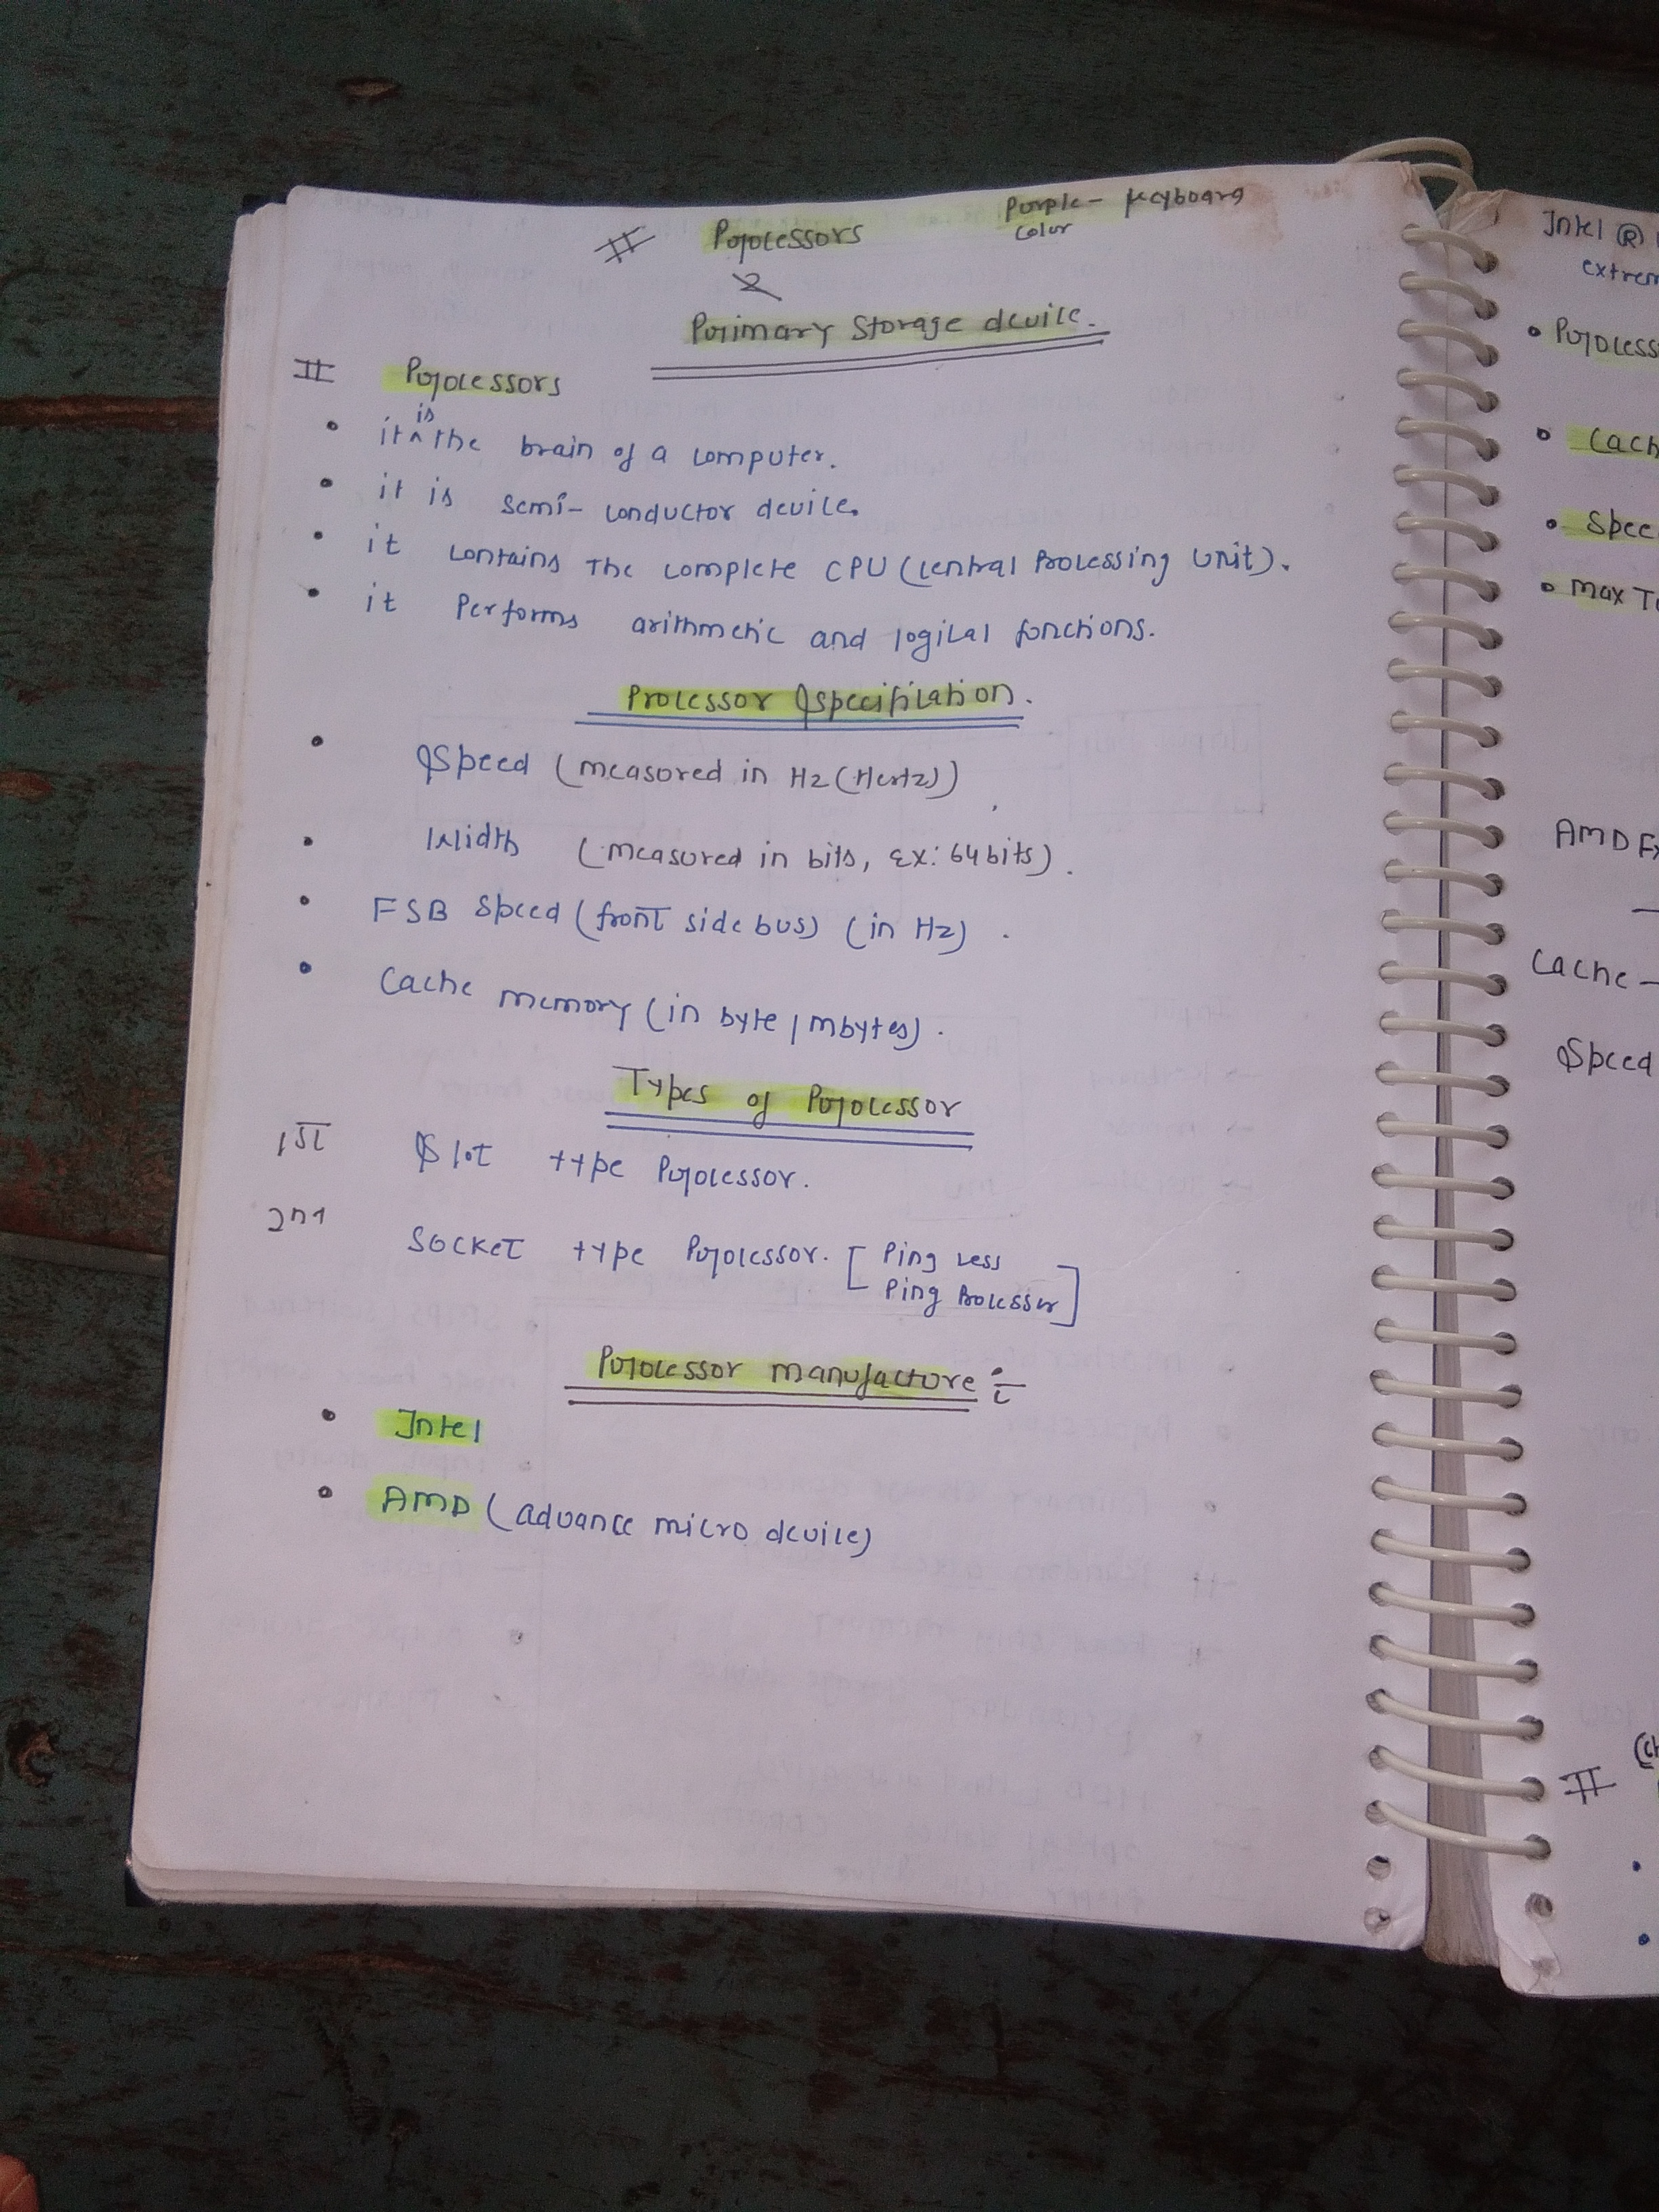 # Processors
Purple - keyboard
color
&
Primary Storage device.
# Processors
• it is the brain of a computer.
• it is semi-conductor device.
• it contains the complete CPU (Central Processing Unit).
• it Performs arithmetic and logical functions.
Processor Specification.
• Speed (measured in Hz (Hertz))
• Width (measured in bits, Ex: 64 bits).
• FSB Speed (front side bus) (in Hz).
• Cache memory (in byte / mbytes).
Types of Processor
1st Slot type Processor.
2nd Socket type Processor. [ Ping Less
Ping Processer ]
Processor manufacture :-
• Intel
• AMD (advance micro device)
Intel ®
• Process
• Cach
• Spee
• max
AMD
Cache -
Speed
#